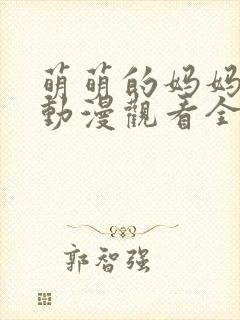 萌萌的妈妈
動漫觀看全
郭智强